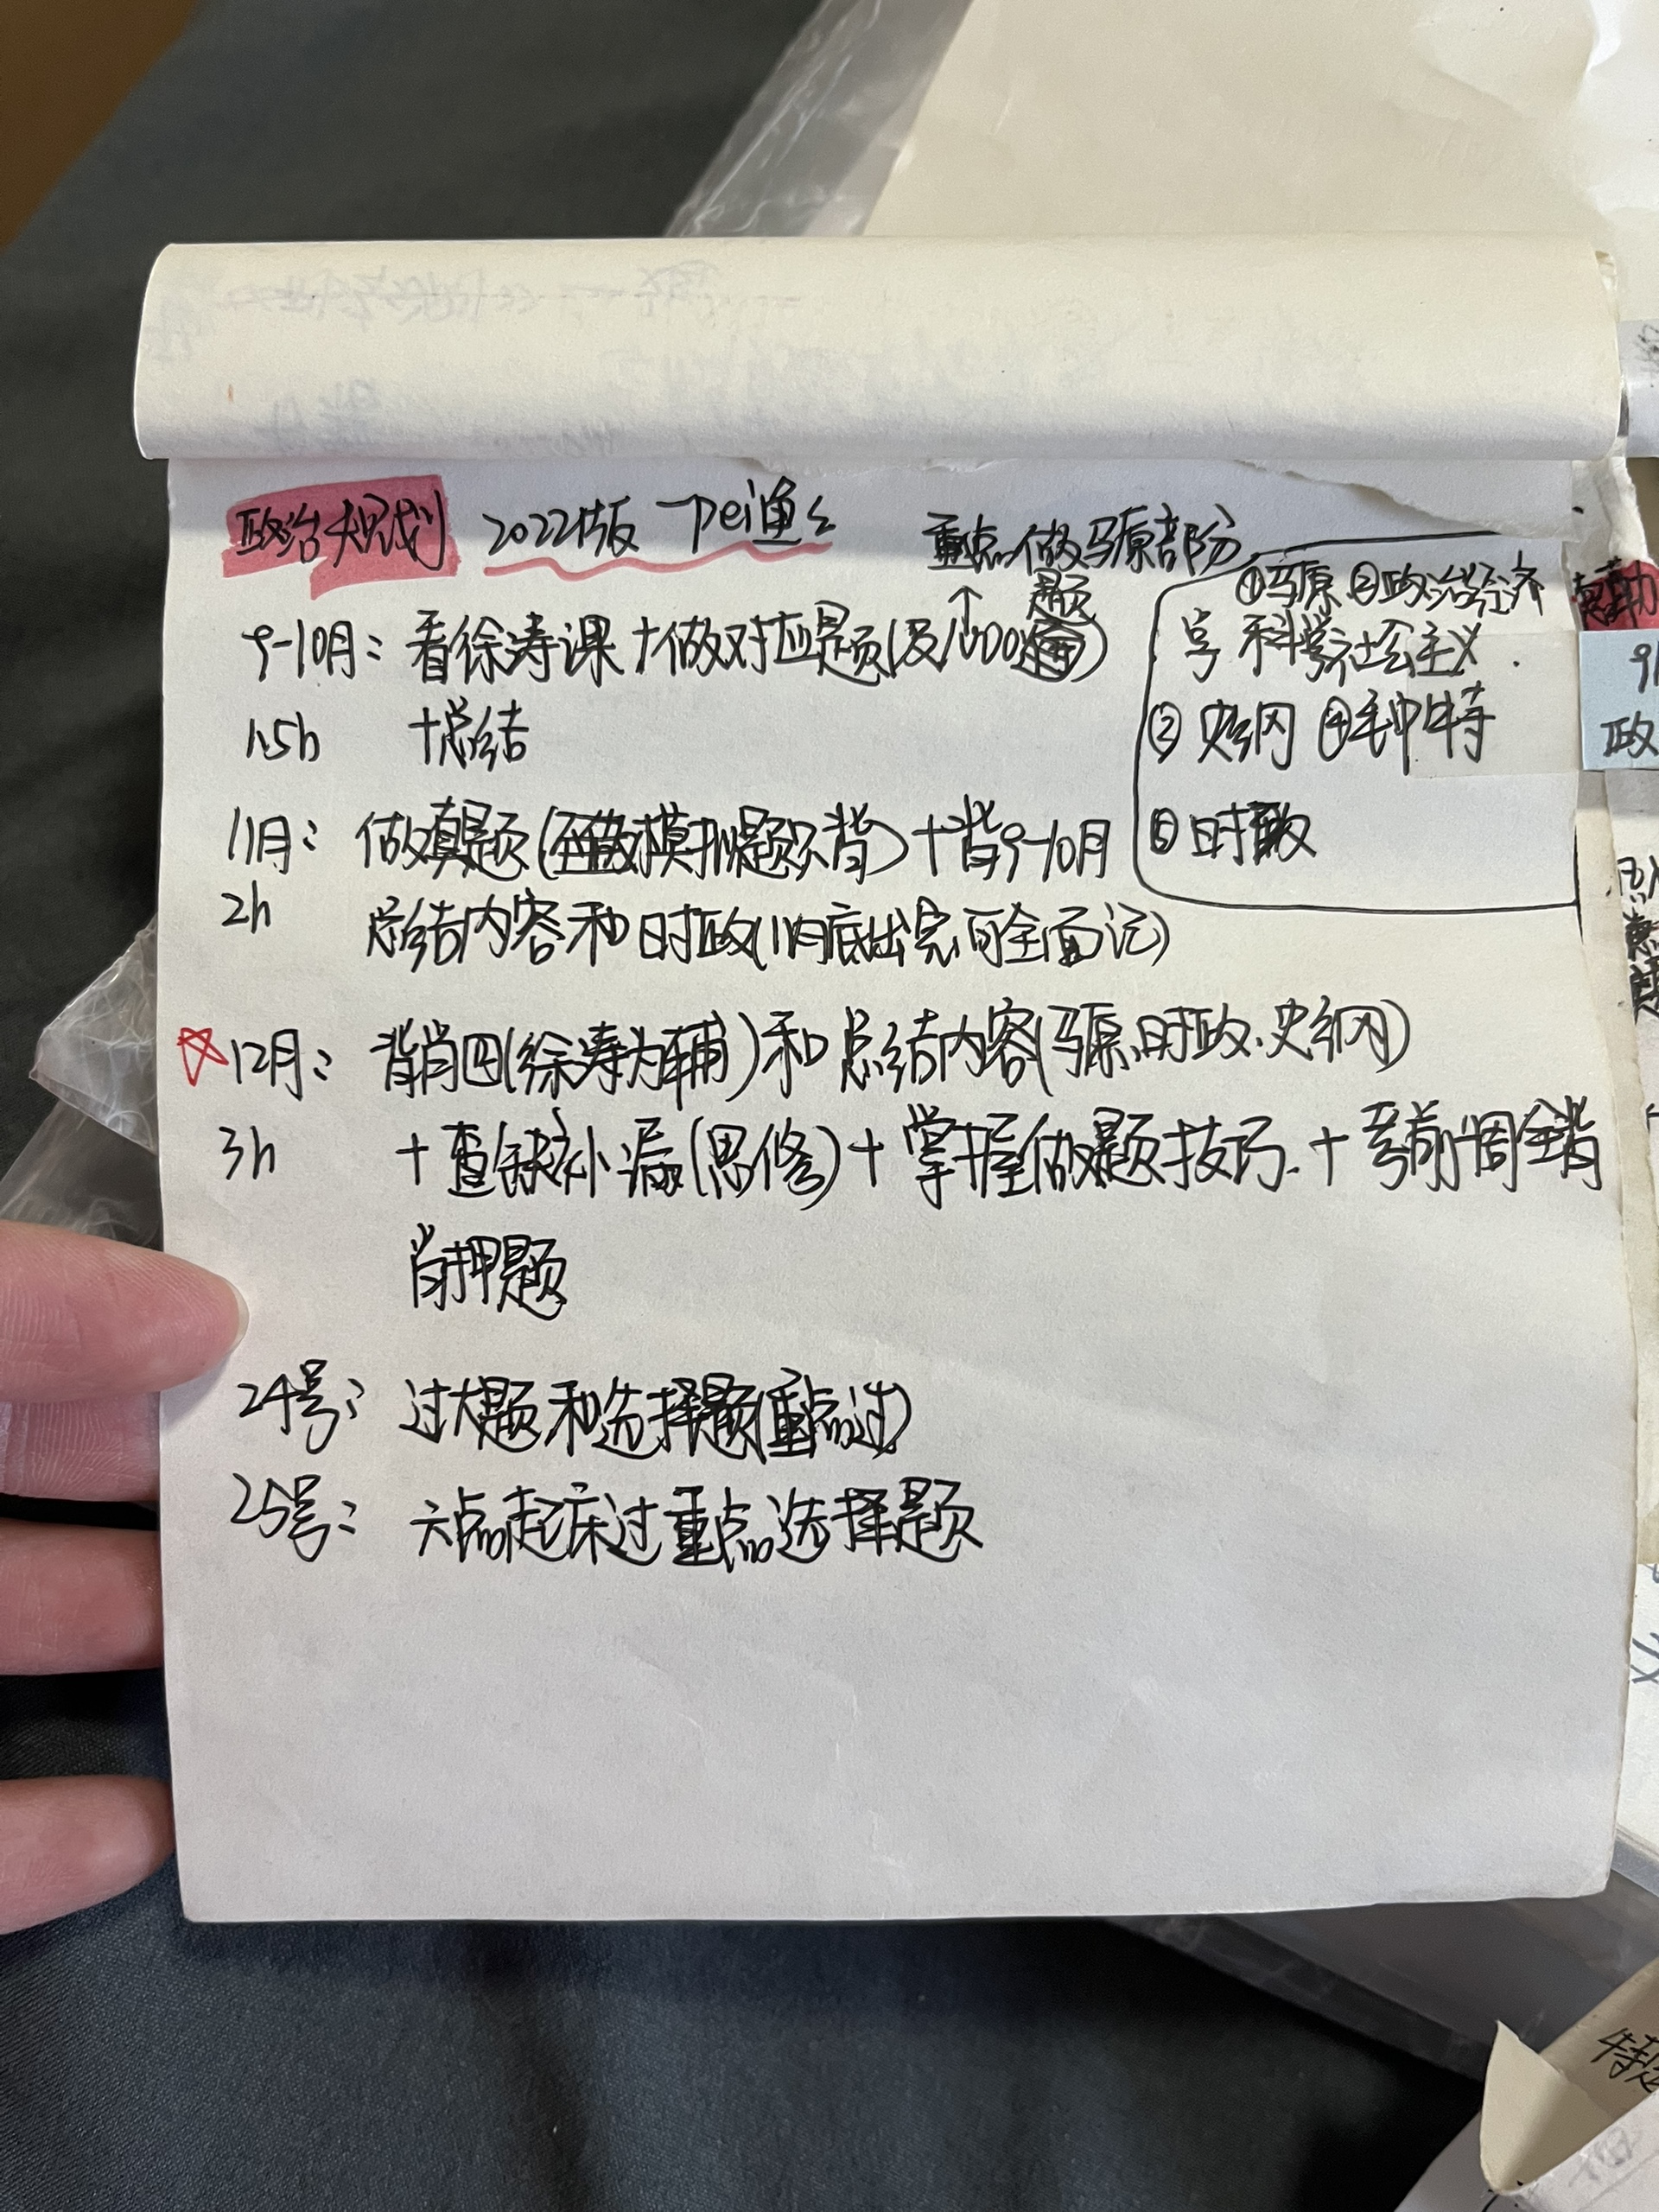 政治规划 2022版
重点做马原部分
题
9-10月：看徐涛课+做对应题(及1000题)
1.5h +总结
①马原 ②政治经济
学 科学社会主义.
③ 史纲 ④毛中特
⑤ 时政
11月：做真题(不做模拟题只背)+背9-10月
2h 总结内容和时政(11月底出完可全面记)
12月：背肖四(徐涛为辅)和总结内容(马原、时政、史纲)
3h +查缺补漏(思修)+掌握做题技巧.+考前一周全背
肖押题
24号：过大题和选择题(重点过)
25号：六点起床过重点选择题
9
政
特